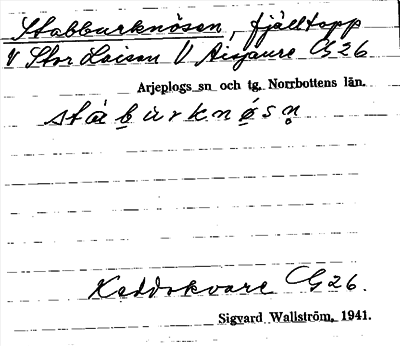 Stabburknösen, fjälltopp
V Stor Laisan V Aisjaure G26
Arjeplogs sn och tg. Norrbottens län.
stáburknǿsn̥
Kaddokvare G26.
Sigvard Wallström, 1941.